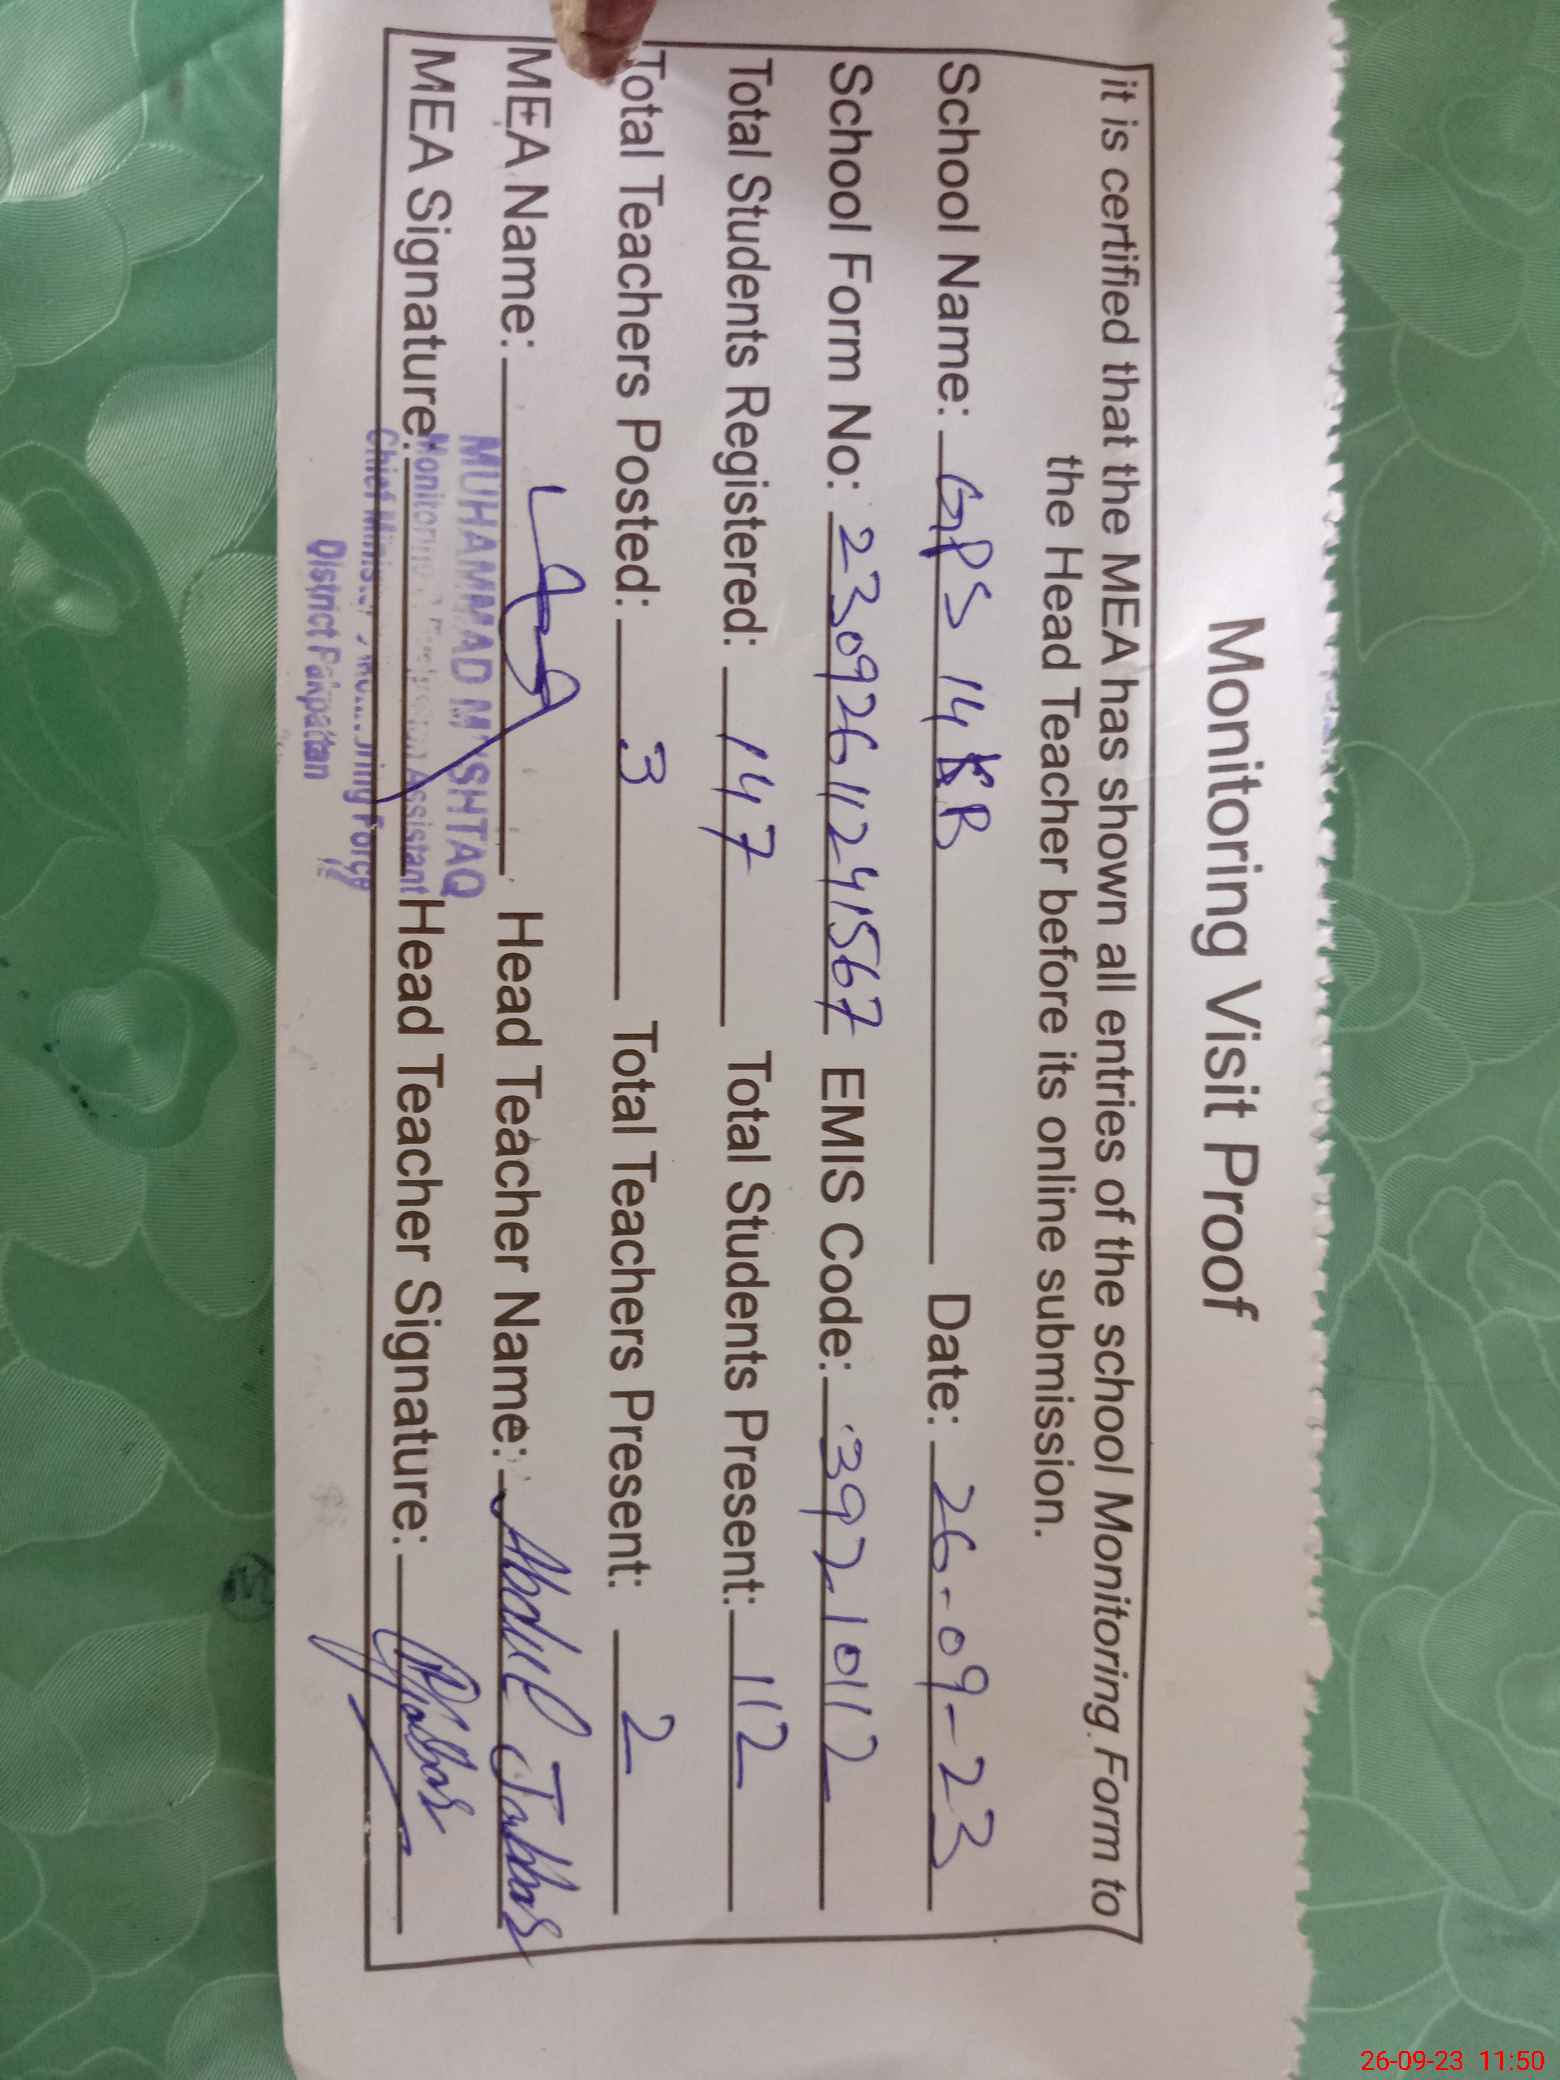 Monitoring Visit Proof
it is certified that the MEA has shown all entries of the school Monitoring Form to
the Head Teacher before its online submission.
School Name: GPS 14 KB Date: 26-09-23
School Form No: 23092611241567 EMIS Code: 39210112
Total Students Registered: 147 Total Students Present: 112
Total Teachers Posted: 3 Total Teachers Present: 2
MEA Name: Head Teacher Name: Abdul Jabbar
MUHAMMAD MUSHTAQ
MEA Signature: Head Teacher Signature: Jabbar
Monitoring Assistant
Chief Minister's Monitoring Force
District Pakpattan
26-09-23 11:50